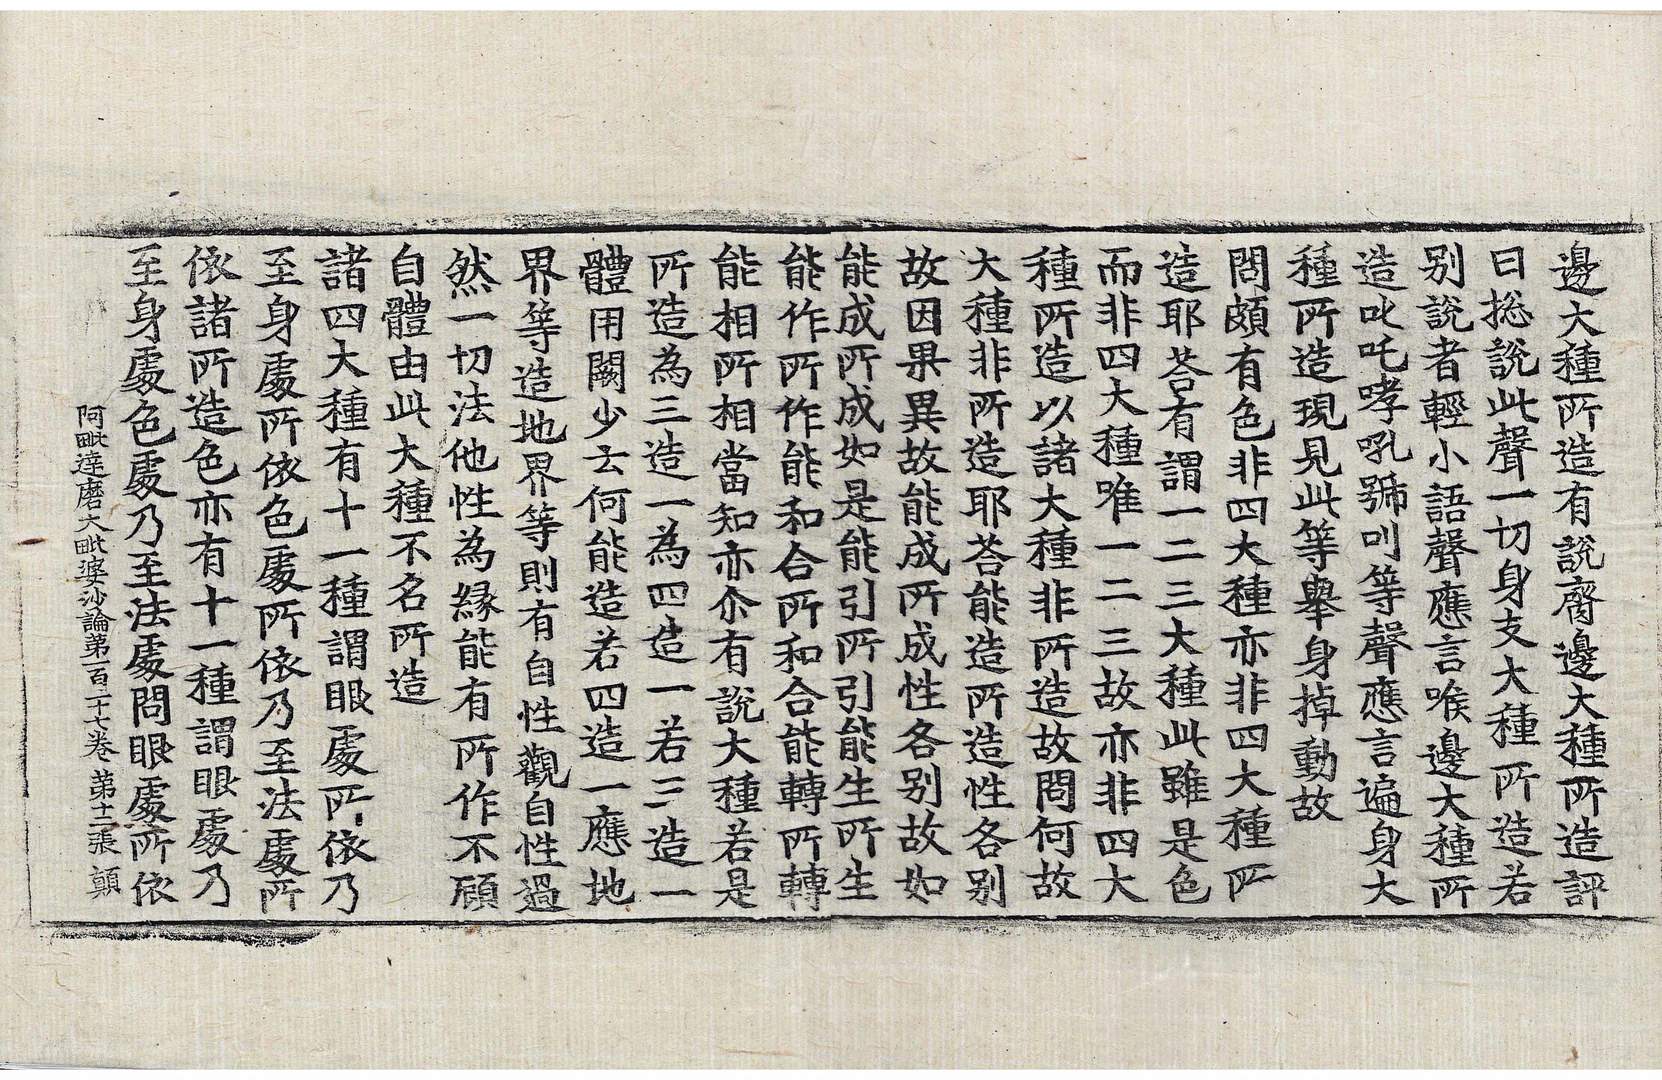 邊大種所造有說齎邊大種所造評
曰捴說此聲一切身支大種所造若
别說者輕小語聲應言喉邊大種所
造叱吒哮吼號叫等聲應言遍身大
種所造現見此等舉身掉動故
問頗有色非四大種亦非四大種所
造耶荅有謂一二三大種此雖是色
而非四大種唯一二三故亦非四大
種所造以諸大種非所造故問何故
大種非所造耶荅能造所造性各别
故因果異故能成所成性各别故如
能成所成如是能引所引能生所生
能作所作能和合所和合能轉所轉
能相所相當知亦尒有說大種若是
所造為三造一為四造一若三造一
體用闕少云何能造若四造一應地
界等造地界等則有自性觀自性過
然一切法他性為緣能有所作不顧
自體由此大種不名所造
諸四大種有十一種謂眼處所依乃
至身處所依色處所依乃至法處所
依諸所造色亦有十一種謂眼處乃
至身處色處乃至法處問眼處所依
阿毗達磨大毗婆沙論第一百二十七卷 第十二張 顗